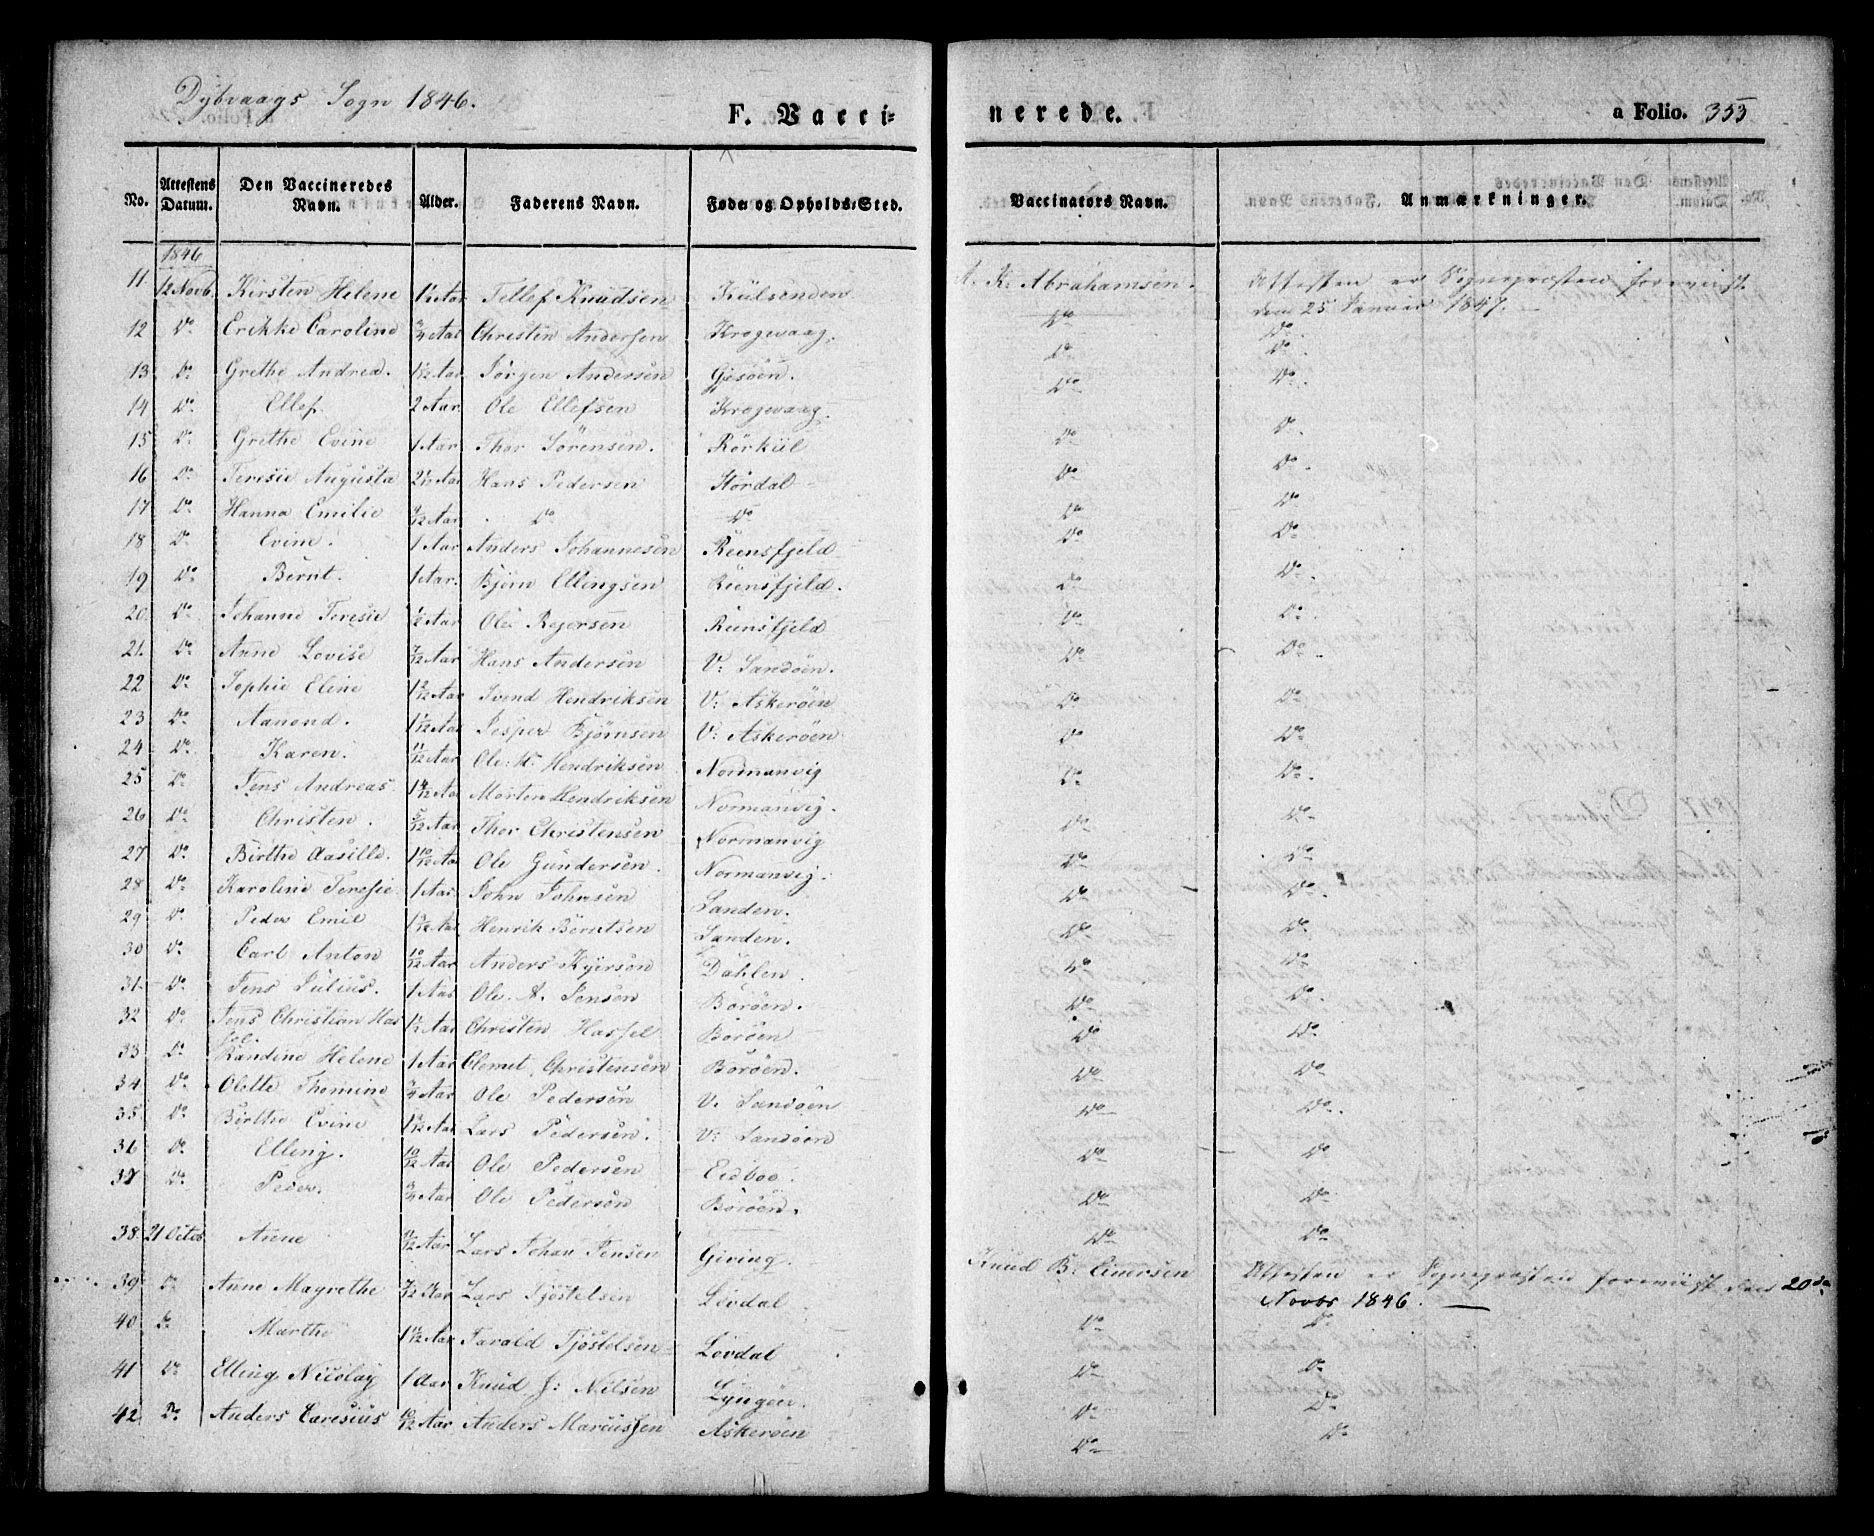 Dybvaags Sogn 1846.
F. Vaccinerede. a Folio. 353
No. Attestens Datum. Den Vaccineredes Navn. Alder. Faderens Navn. Føde- og Opholds-Sted. Vaccinators Navn. Anmærkninger.
1846
11. 12 Novb. Kirsten Helene Tellef Knudsen Külsenden A. K. Abrahamsen. Attesten er Sognepræsten foreviist
den 25 Januar 1847.
12 Do Erikke Caroline 3/4 Aar Christen Andersen Krogevaag. Do Do
13 Do Grethe Andrea. Jörgen Andersen Gjesöen. Do Do
14 Do Ellef. 2 Aar Ole Ellefsen Krogevaag. Do Do
15 Do Grethe Evine 1 Aar Thor Sörensen. Rörkiil Do Do
16 Do Teresie Augusta 2 1/2 Aar Hans Pedersen Stördal Do Do
17 Do Hanna Emilie Do Do Do Do
18 Do Evine. 1 Aar Anders Johannesen Reensfjeld Do Do
19 Do Bernt. 1 Aar. Bjön Ellingsen Reensfjeld. Do Do
20 Do Johanne Teresie 1/2 Aar Ole Rejersen Reensfjeld Do Do
21. Do Anne Lovise 7/12 Aar Hans Andersen V: Sandöen. Do Do
22 Do Sophie Eline Svend Hendriksen V: Askeröen Do Do
23 Do Aanond. 1 1/12 Aar Jesper Björnsen V: Askeröen Do Do
24 Do Karen. 11/12 Aar Ole Hendriksen Normanvig Do Do
25 Do Jens Andreas. Morten Hendriksen Normanvig. Do Do
26 Do Christen. 5/12 Aar Thor Christensen Normanvig Do Do
27 Do Birthe Aasille 1 10/12 Aar Ole Gundersen. Normanvig. Do Do
28 Do Karoline Teresie. 1 Aar John Johnsen Sanden. Do Do
29 Do Peder Emil Henrik Berntsen Sanden. Do Do
30 Do Carl Anton 10/12 Aar Anders Kjersön Dahlen. Do Do
31 Do Jens Julius. 1 Aar Ole A. Jensen Boröen. Do Do
32 Do Jens Christian Has 1 1/2 Aar Christen Hassel Boröen Do Do
sel.
33 Do Randine Helene 1 Aar Clemet Christensen Boröen. Do Do
34 Do Olette Thomine 3/4 Aar Ole Pedersen V. Sandöen Do Do
35 Do Birthe Evine Lars Pedersen. V: Sandöen Do Do
36 Do Elling. 10/12 Aar Ole Pedersen Eidboe. Do Do
37 Do Peder. 3/4 Aar Ole Pedersen Boröen. Do Do
38. 21 Octob Anne Lars Johan Jensen Giving. Knud B: Einersen Attesten er Sognepræsten foreviist den 20de
Novbr 1846.
39 Do Anne Magrethe Lars Tjöstelsen Lövdal Do Do
40 Do Marthe 1 11/12 Aar Tarald Tjöstelsen Lövdal Do Do
41 Do Elling Nicolay 1 Aar Knud J: Nilsen Lyngöer. Do Do
42. Do Anders Taresius 10/12 Aar Anders Marcussen Askeröen Do Do